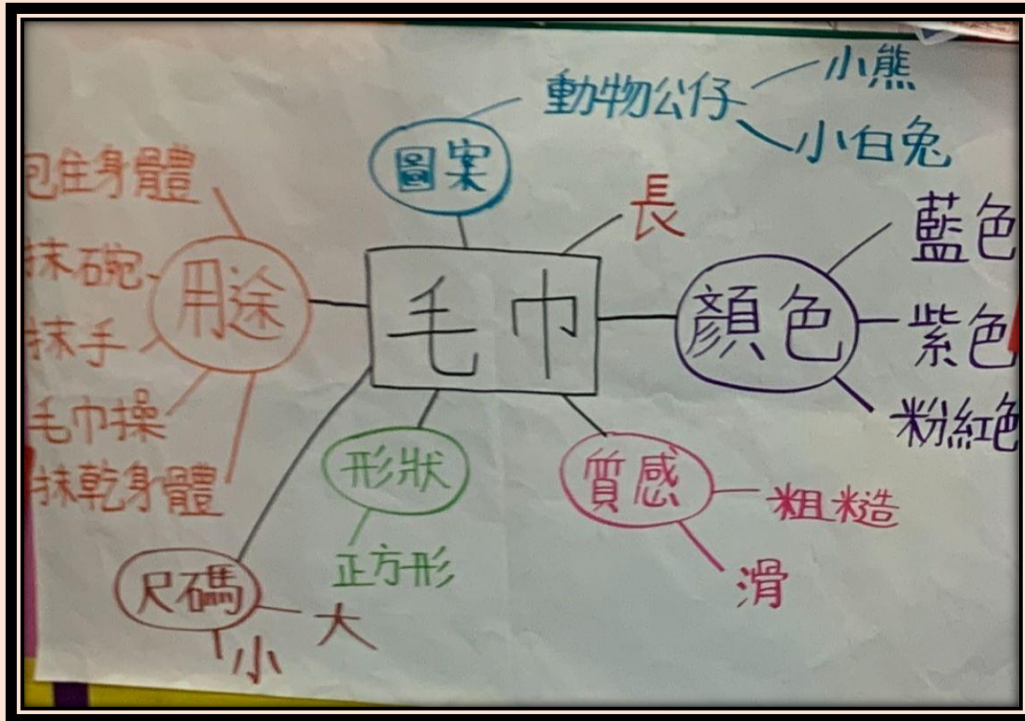 毛巾
圖案
動物公仔
小熊
小白兔
長
顏色
藍色
紫色
粉紅色
質感
粗糙
滑
形狀
正方形
尺碼
大
小
用途
包住身體
抹碗
抹手
毛巾操
抹乾身體